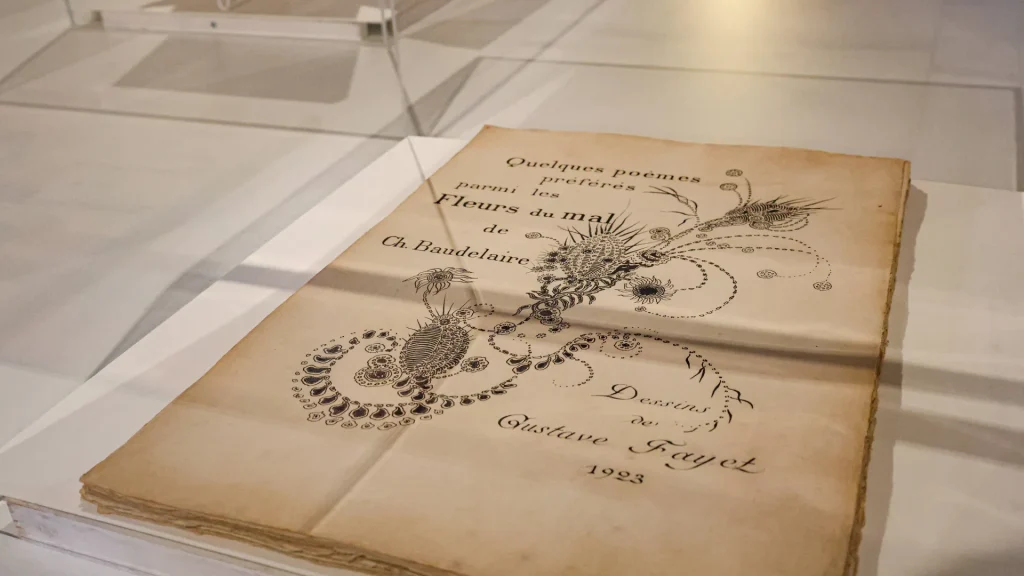 Quelques poèmes
préférés
parmi les
Fleurs du mal
de
Ch. Baudelaire
Dessins
de
Gustave Fayet
1923